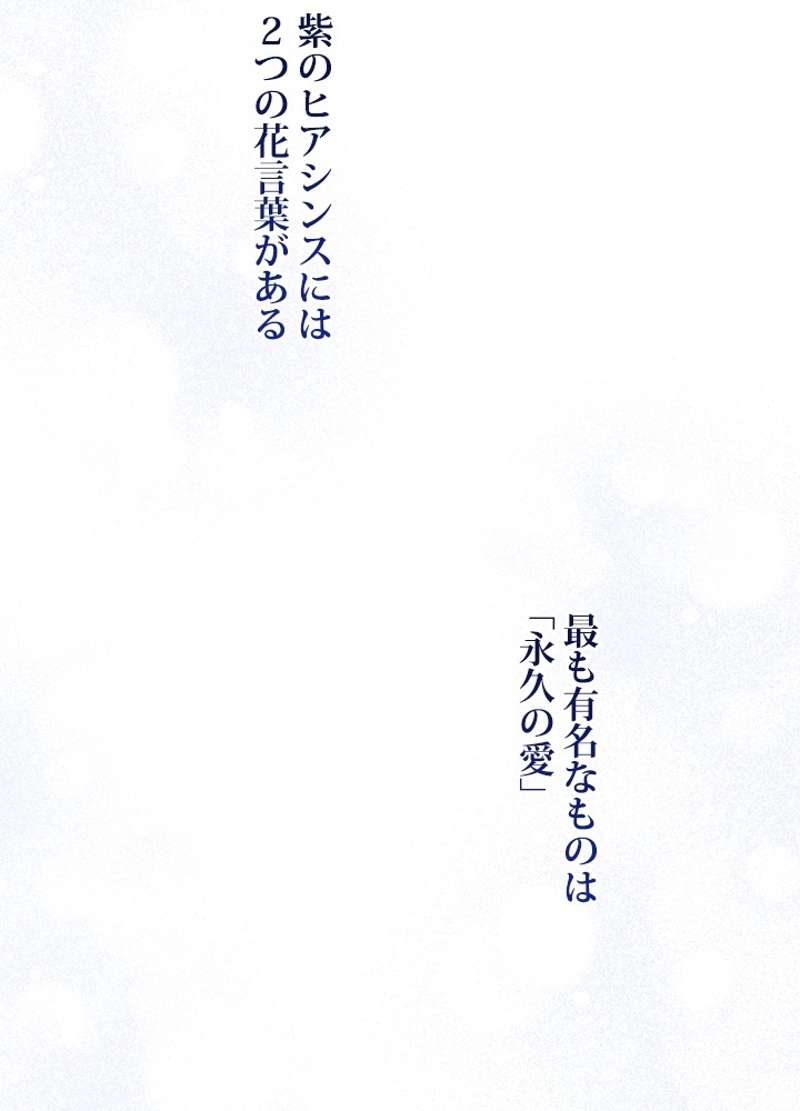 紫のヒアシンスには
２つの花言葉がある
最も有名なものは
「永久の愛」